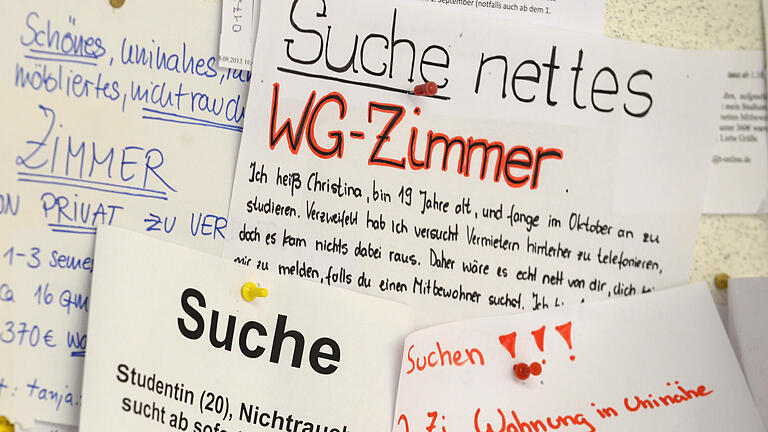 Schönes, uninahes,
möbliertes, nichtrauch
ZIMMER
PRIVAT ZU VER
1-3 Seme
ca 16 qm
370€
tanja.
. September (notfalls auch ab dem 1.
Suche nettes
WG-Zimmer.
Ich heiß Christina, bin 19 Jahre alt, und fange im Oktober an zu
studieren. Verzweifelt hab ich versucht Vermietern hinterher zu telefonieren,
doch es kam nichts dabei raus. Daher wäre es echt nett von dir, dich
mir zu melden, falls du einen Mitbewohner suchst. Ich
Suche
Studentin (20), Nichtrauch
sucht ab sofo
Suchen !!!
2 Zi. Wohnung in Uninähe
Liebe Grüße